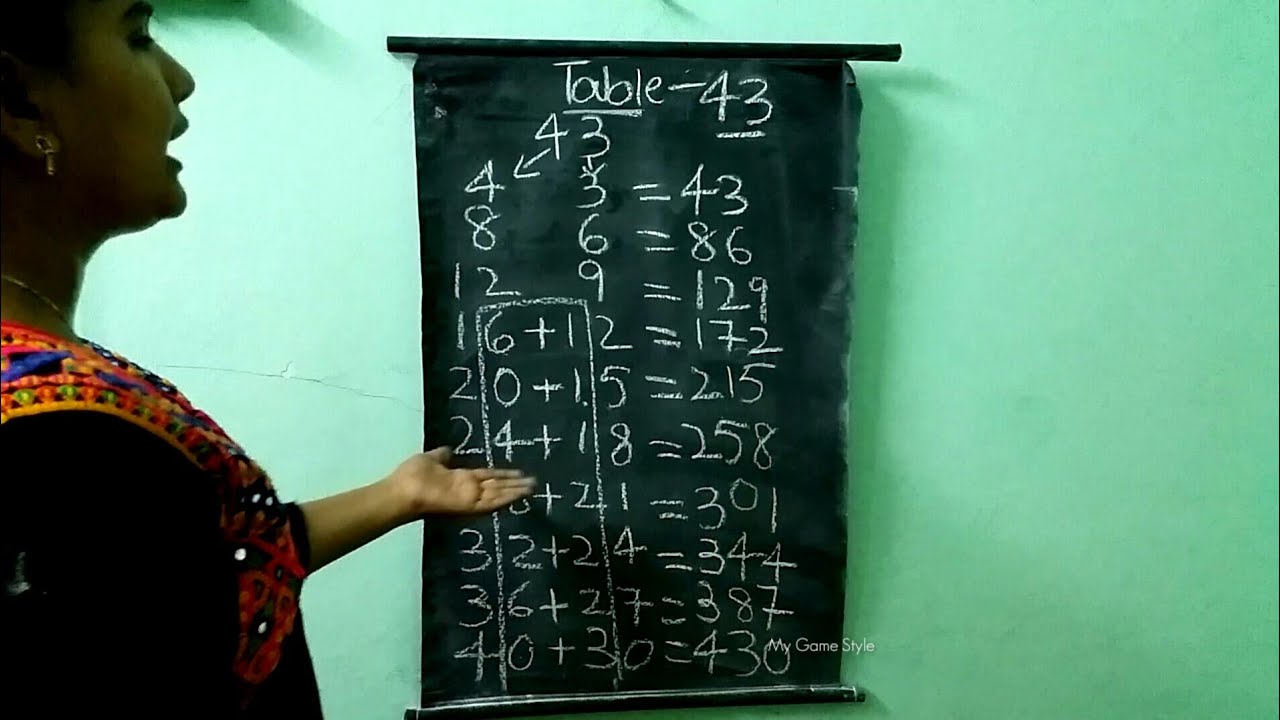 Table - 43
43
4 3 = 43
8 6 = 86
12 9 = 129
16+12 = 172
20+15 = 215
24+18 = 258
+21 = 301
32+24 = 344
36+27 = 387
40+30 = 430
My Game Style